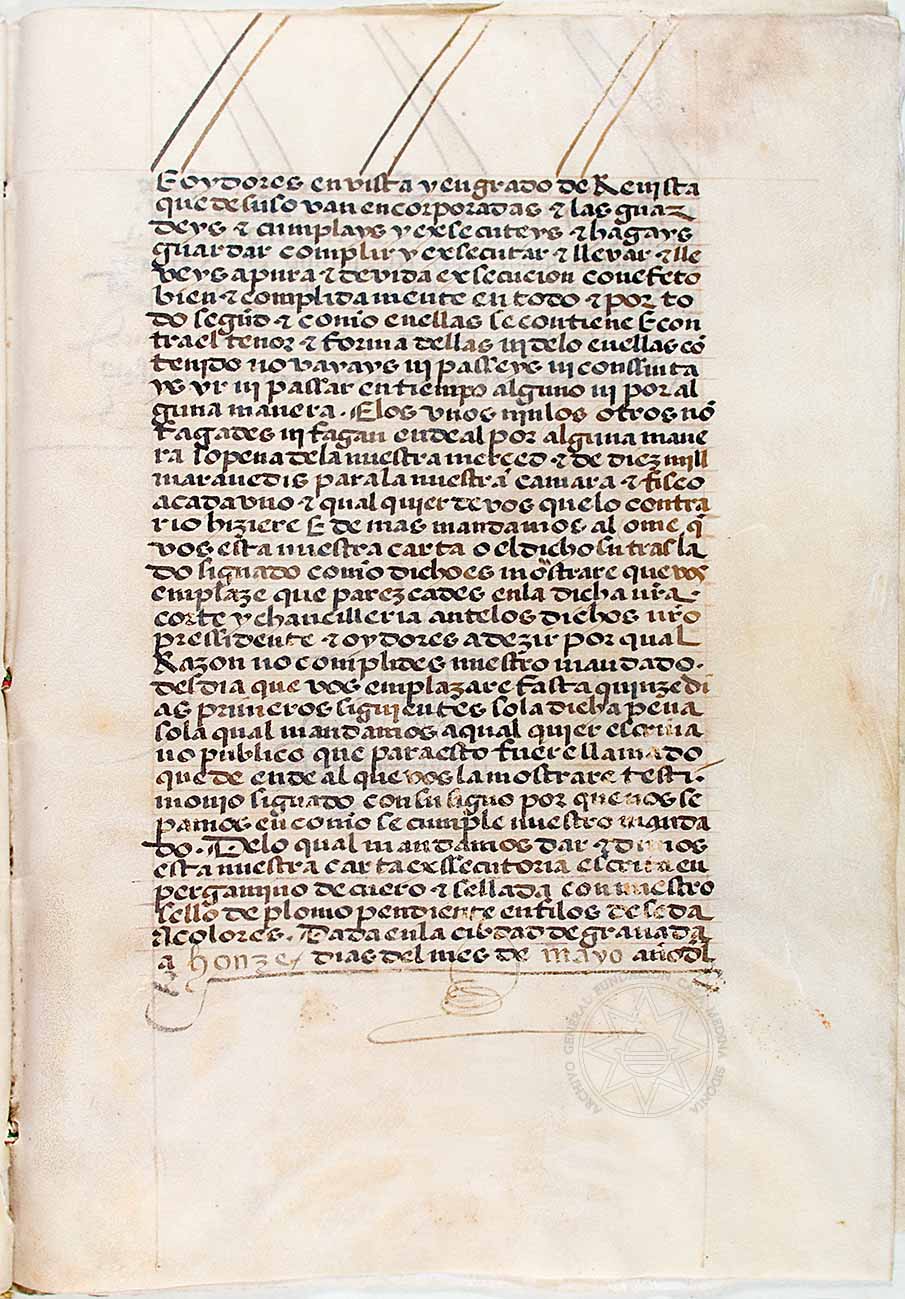 E oydores en vista y en grado de Revista
que de suso van encorporadas & las guar
deys & cumplays y exsecuteys & hagays
guardar complir y exsecutar & llevar & lle
veys a pura & devida exsecucion con efeto
bien & complida mente en todo & por to
do segũd & como en ellas se contiene E con
tra el tenor & forma dellas ni delo en ellas cõ
tenido no vayays ni passeys ni conssinta
ys yr ni passar en tiempo alguno ni por al
guna manera. E los unos nin los otros nõ
fagades ni fagan ende al por alguna mane
ra so pena dela nuestra merced & de diez mill
maravedis para la nuestra camara & fisco
a cada uno & qual quier de vos que lo contra
rio hiziere E de mas mandamos al ome q̃
vos esta nuestra carta o el dicho su trasla
do signado como dicho es mostrare que vos
emplaze que parezcades en la dicha nr̃a
corte y chancilleria ante los dichos nr̃o
pressidente & oydores a dezir por qual
Razon no complides nuestro mandado.
del dia que vos emplazare fasta quinze di
as primeros siguientes so la dicha pena
so la qual mandamos a qual quier escriva
no publico que para esto fuere llamado
que de ende al que vos la mostrare testi
monio signado con su signo por que nos se
pamos en como se cumple nuestro manda
do. Delo qual mandamos dar & dimos
esta nuestra carta exssecutoria escrita en
pergamino de cuero & sellada con nuestro
sello de plomo pendiente en filos de seda
A colores. Dada en la cibdad de granada
a honze dias del mes de mayo año dl
ARCHIVO GENERAL FUNDACION CASA MEDINA SIDONIA